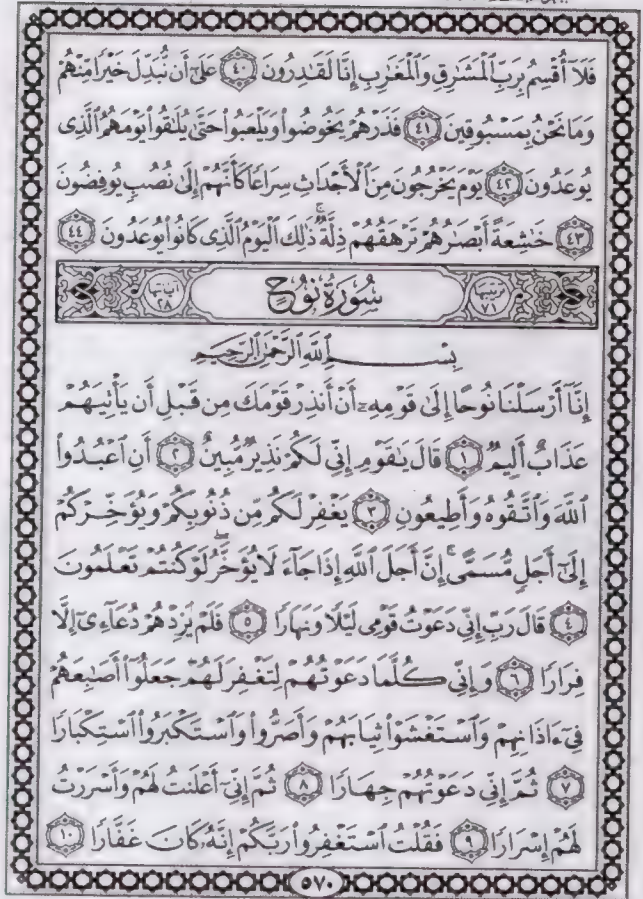 فَلَآ أُقْسِمُ بِرَبِّ ٱلْمَشَٰرِقِ وَٱلْمَغَٰرِبِ إِنَّا لَقَٰدِرُونَ ٤٠ عَلَىٰٓ أَن نُّبَدِّلَ خَيْرًا مِّنْهُمْ
وَمَا نَحْنُ بِمَسْبُوقِينَ ٤١ فَذَرْهُمْ يَخُوضُوا۟ وَيَلْعَبُوا۟ حَتَّىٰ يُلَٰقُوا۟ يَوْمَهُمُ ٱلَّذِى
يُوعَدُونَ ٤٢ يَوْمَ يَخْرُجُونَ مِنَ ٱلْأَجْدَاثِ سِرَاعًا كَأَنَّهُمْ إِلَىٰ نُصُبٍ يُوفِضُونَ
٤٣ خَٰشِعَةً أَبْصَٰرُهُمْ تَرْهَقُهُمْ ذِلَّةٌ ۚ ذَٰلِكَ ٱلْيَوْمُ ٱلَّذِى كَانُوا۟ يُوعَدُونَ ٤٤
ترتيبها ٧١ سُورَةُ نُوحٍ آياتها ٢٨
بِسْمِ ٱللَّهِ ٱلرَّحْمَٰنِ ٱلرَّحِيمِ
إِنَّآ أَرْسَلْنَا نُوحًا إِلَىٰ قَوْمِهِۦٓ أَنْ أَنذِرْ قَوْمَكَ مِن قَبْلِ أَن يَأْتِيَهُمْ
عَذَابٌ أَلِيمٌ ١ قَالَ يَٰقَوْمِ إِنِّى لَكُمْ نَذِيرٌ مُّبِينٌ ٢ أَنِ ٱعْبُدُوا۟
ٱللَّهَ وَٱتَّقُوهُ وَأَطِيعُونِ ٣ يَغْفِرْ لَكُم مِّن ذُنُوبِكُمْ وَيُؤَخِّرْكُمْ
إِلَىٰٓ أَجَلٍ مُّسَمًّى ۚ إِنَّ أَجَلَ ٱللَّهِ إِذَا جَآءَ لَا يُؤَخَّرُ ۖ لَوْ كُنتُمْ تَعْلَمُونَ
٤ قَالَ رَبِّ إِنِّى دَعَوْتُ قَوْمِى لَيْلًا وَنَهَارًا ٥ فَلَمْ يَزِدْهُمْ دُعَآءِىٓ إِلَّا
فِرَارًا ٦ وَإِنِّى كُلَّمَا دَعَوْتُهُمْ لِتَغْفِرَ لَهُمْ جَعَلُوٓا۟ أَصَٰبِعَهُمْ
فِىٓ ءَاذَانِهِمْ وَٱسْتَغْشَوْا۟ ثِيَابَهُمْ وَأَصَرُّوا۟ وَٱسْتَكْبَرُوا۟ ٱسْتِكْبَارًا
٧ ثُمَّ إِنِّى دَعَوْتُهُمْ جِهَارًا ٨ ثُمَّ إِنِّىٓ أَعْلَنتُ لَهُمْ وَأَسْرَرْتُ
لَهُمْ إِسْرَارًا ٩ فَقُلْتُ ٱسْتَغْفِرُوا۟ رَبَّكُمْ إِنَّهُۥ كَانَ غَفَّارًا ١٠
٥٧٠